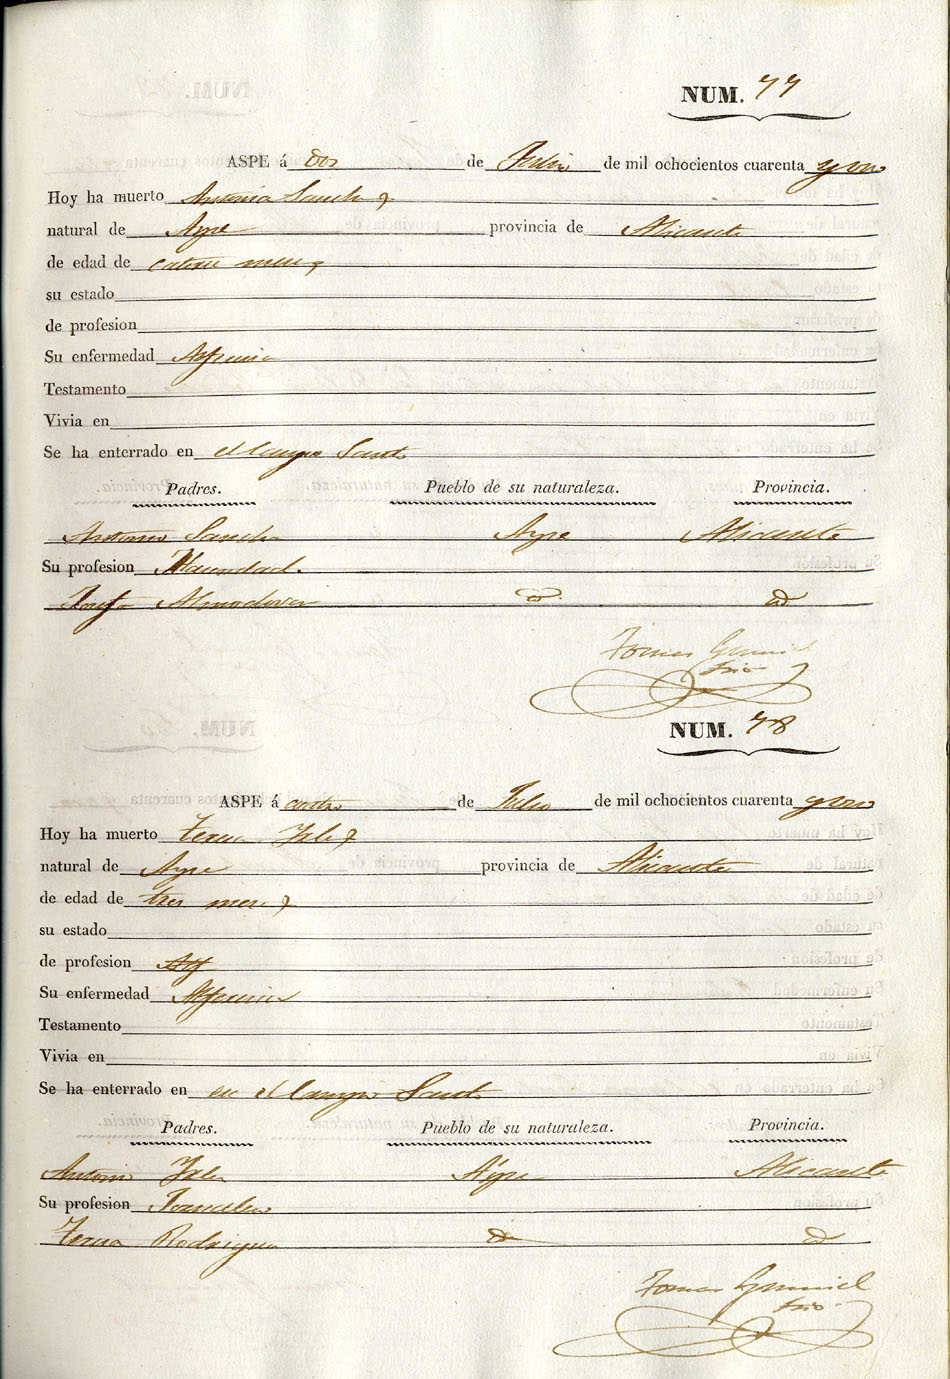 NUM. 77
ASPE á dos de Julio de mil ochocientos cuarenta y uno
Hoy ha muerto Antonia Sanchz
natural de Aspe provincia de Alicante
de edad de catorce meses
su estado
de profesion
Su enfermedad
Testamento
Vivia en
Se ha enterrado en el Campo Santo
Padres. Pueblo de su naturaleza. Provincia.
Antonio Sanchz Aspe Alicante
Su profesion
Josefa Almodover id id
Tomas
NUM. 78
ASPE á cuatro de Julio de mil ochocientos cuarenta y uno
Hoy ha muerto teresa
natural de Aspe provincia de Alicante
de edad de tres meses
su estado
de profesion
Su enfermedad
Testamento
Vivia en
Se ha enterrado en en el Campo Santo
Padres. Pueblo de su naturaleza. Provincia.
Antonio Aspe Alicante
Su profesion Jornalero
Teresa Rodriguez id id
Tomas